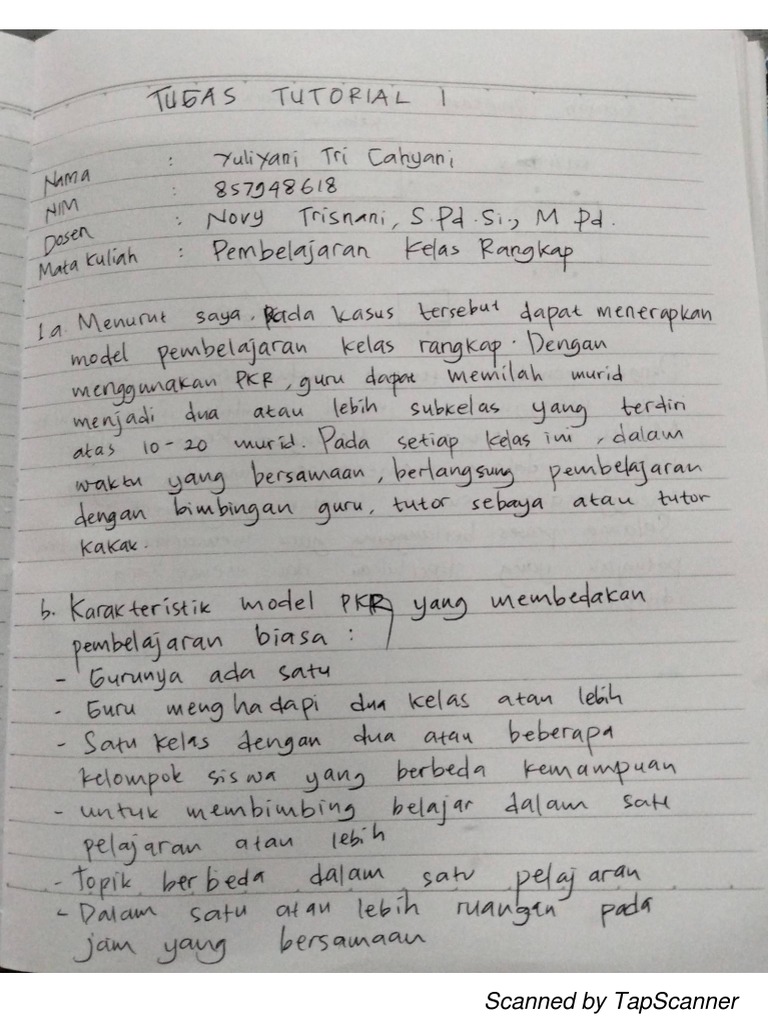 TUGAS TUTORIAL 1
Nama : Yuliyani Tri Cahyani
NIM : 857948618
Dosen : Novy Trisnani, S.Pd.Si., M Pd.
Mata Kuliah : Pembelajaran Kelas Rangkap
1a. Menurut saya, pada kasus tersebut dapat menerapkan
model pembelajaran kelas rangkap. Dengan
menggunakan PKR, guru dapat memilah murid
menjadi dua atau lebih subkelas yang terdiri
atas 10-20 murid. Pada setiap kelas ini, dalam
waktu yang bersamaan, berlangsung pembelajaran
dengan bimbingan guru, tutor sebaya atau tutor
kakak.
b. Karakteristik model PKR, yang membedakan
pembelajaran biasa :
- Gurunya ada satu
- Guru menghadapi dua kelas atau lebih
- Satu kelas dengan dua atau beberapa
kelompok siswa yang berbeda kemampuan
- untuk membimbing belajar dalam satu
pelajaran atau lebih
- Topik berbeda dalam satu pelajaran
- Dalam satu atau lebih ruangan pada
jam yang bersamaan
Scanned by TapScanner